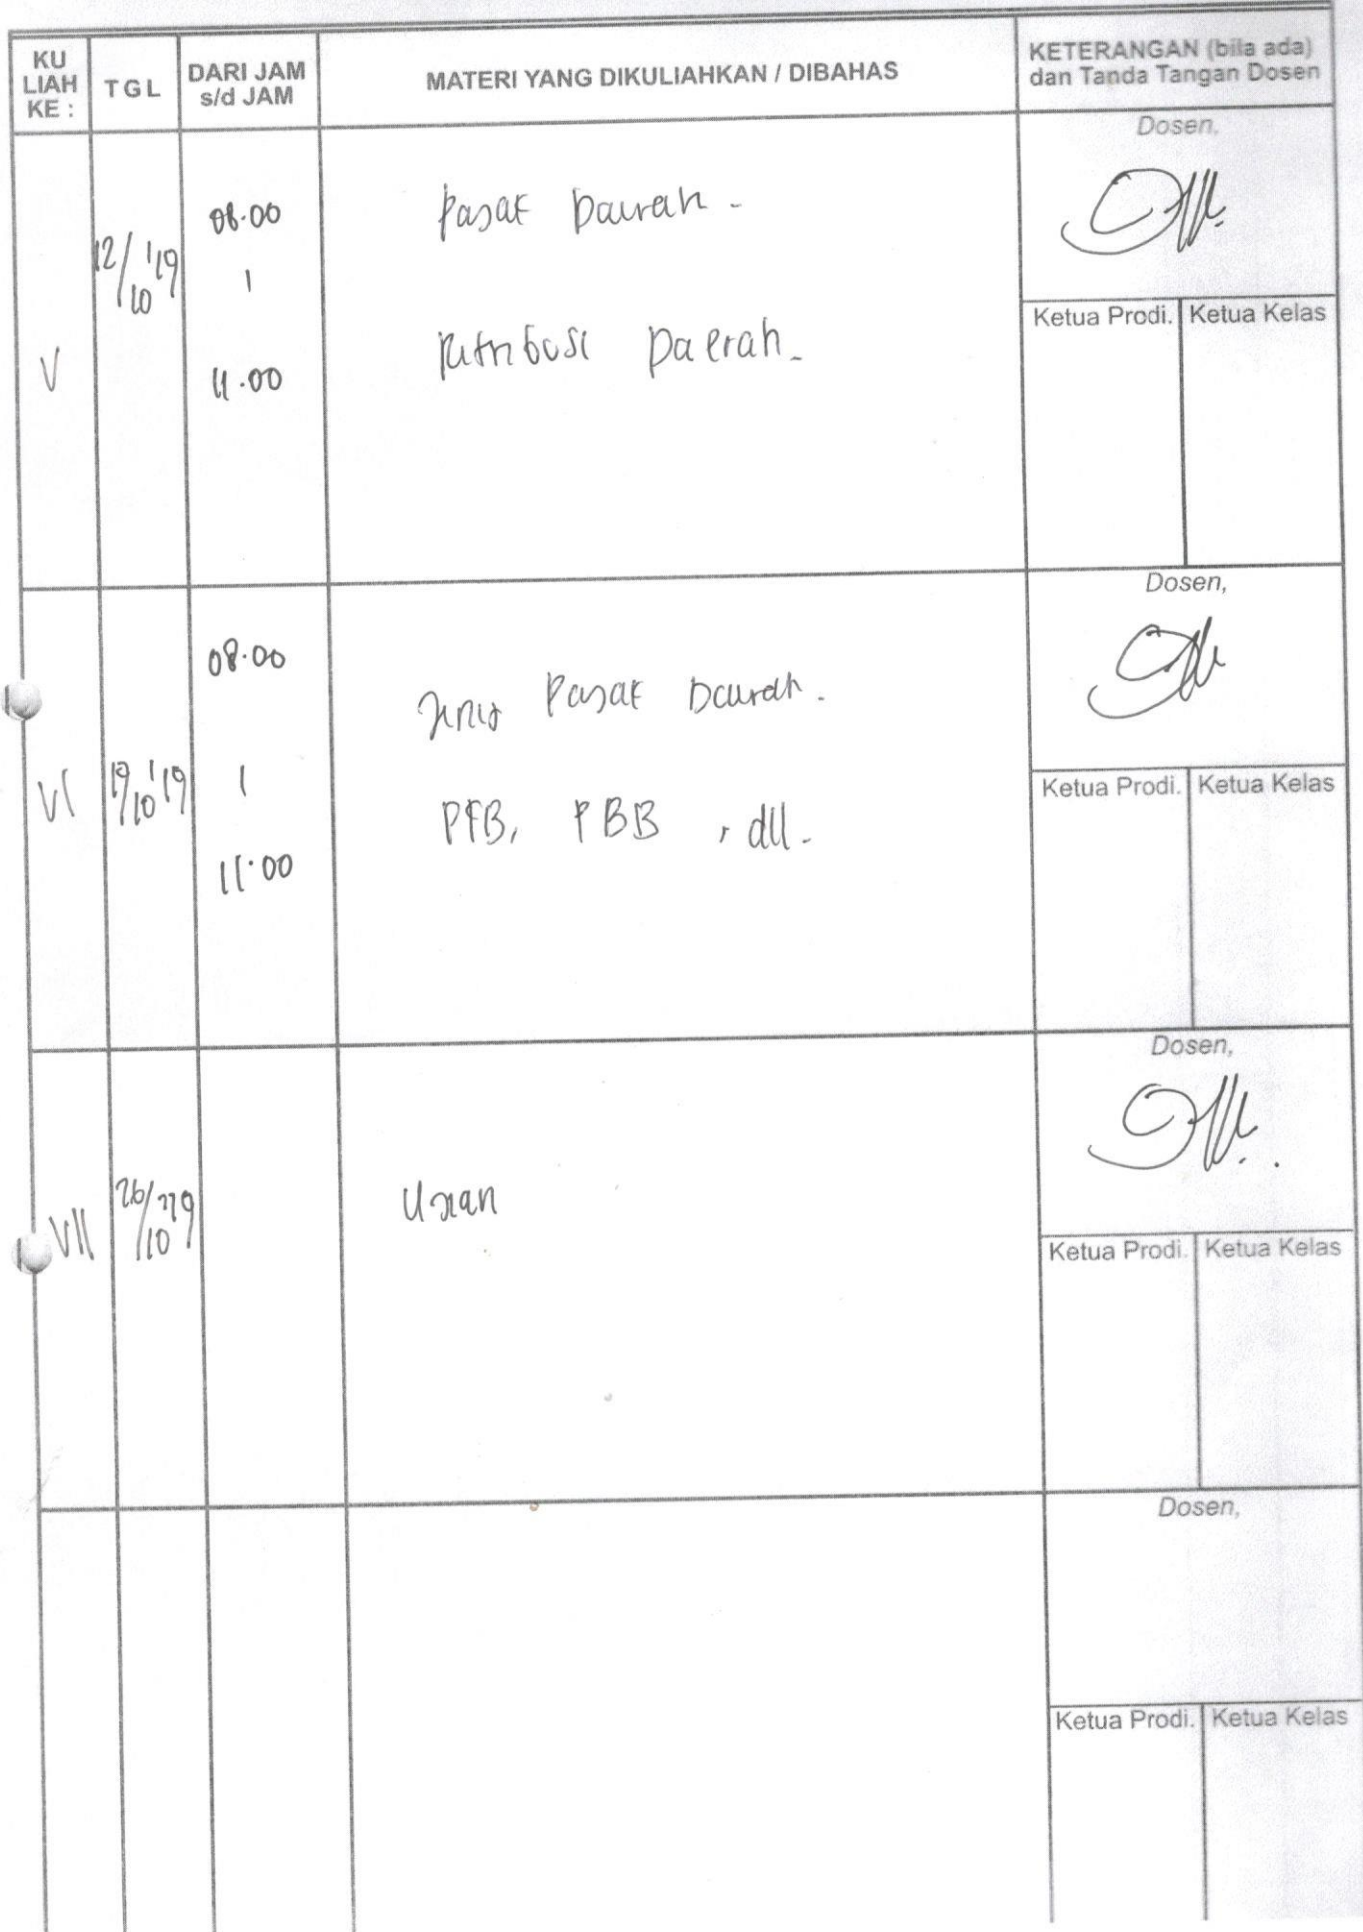 KU LIAH KE :
TGL
DARI JAM s/d JAM
MATERI YANG DIKULIAHKAN / DIBAHAS
KETERANGAN (bila ada) dan Tanda Tangan Dosen
V
12/10 '19
08.00
11.00
Pajak Daerah -
Retribusi Daerah -
Dosen,
Ketua Prodi. Ketua Kelas
VI
19/10 '19
08.00
11.00
Jenis Pajak Daerah.
PBB , dll -
Dosen,
Ketua Prodi. Ketua Kelas
VII
26/10 '19
Ujian
Dosen,
Ketua Prodi. Ketua Kelas
Dosen,
Ketua Prodi. Ketua Kelas